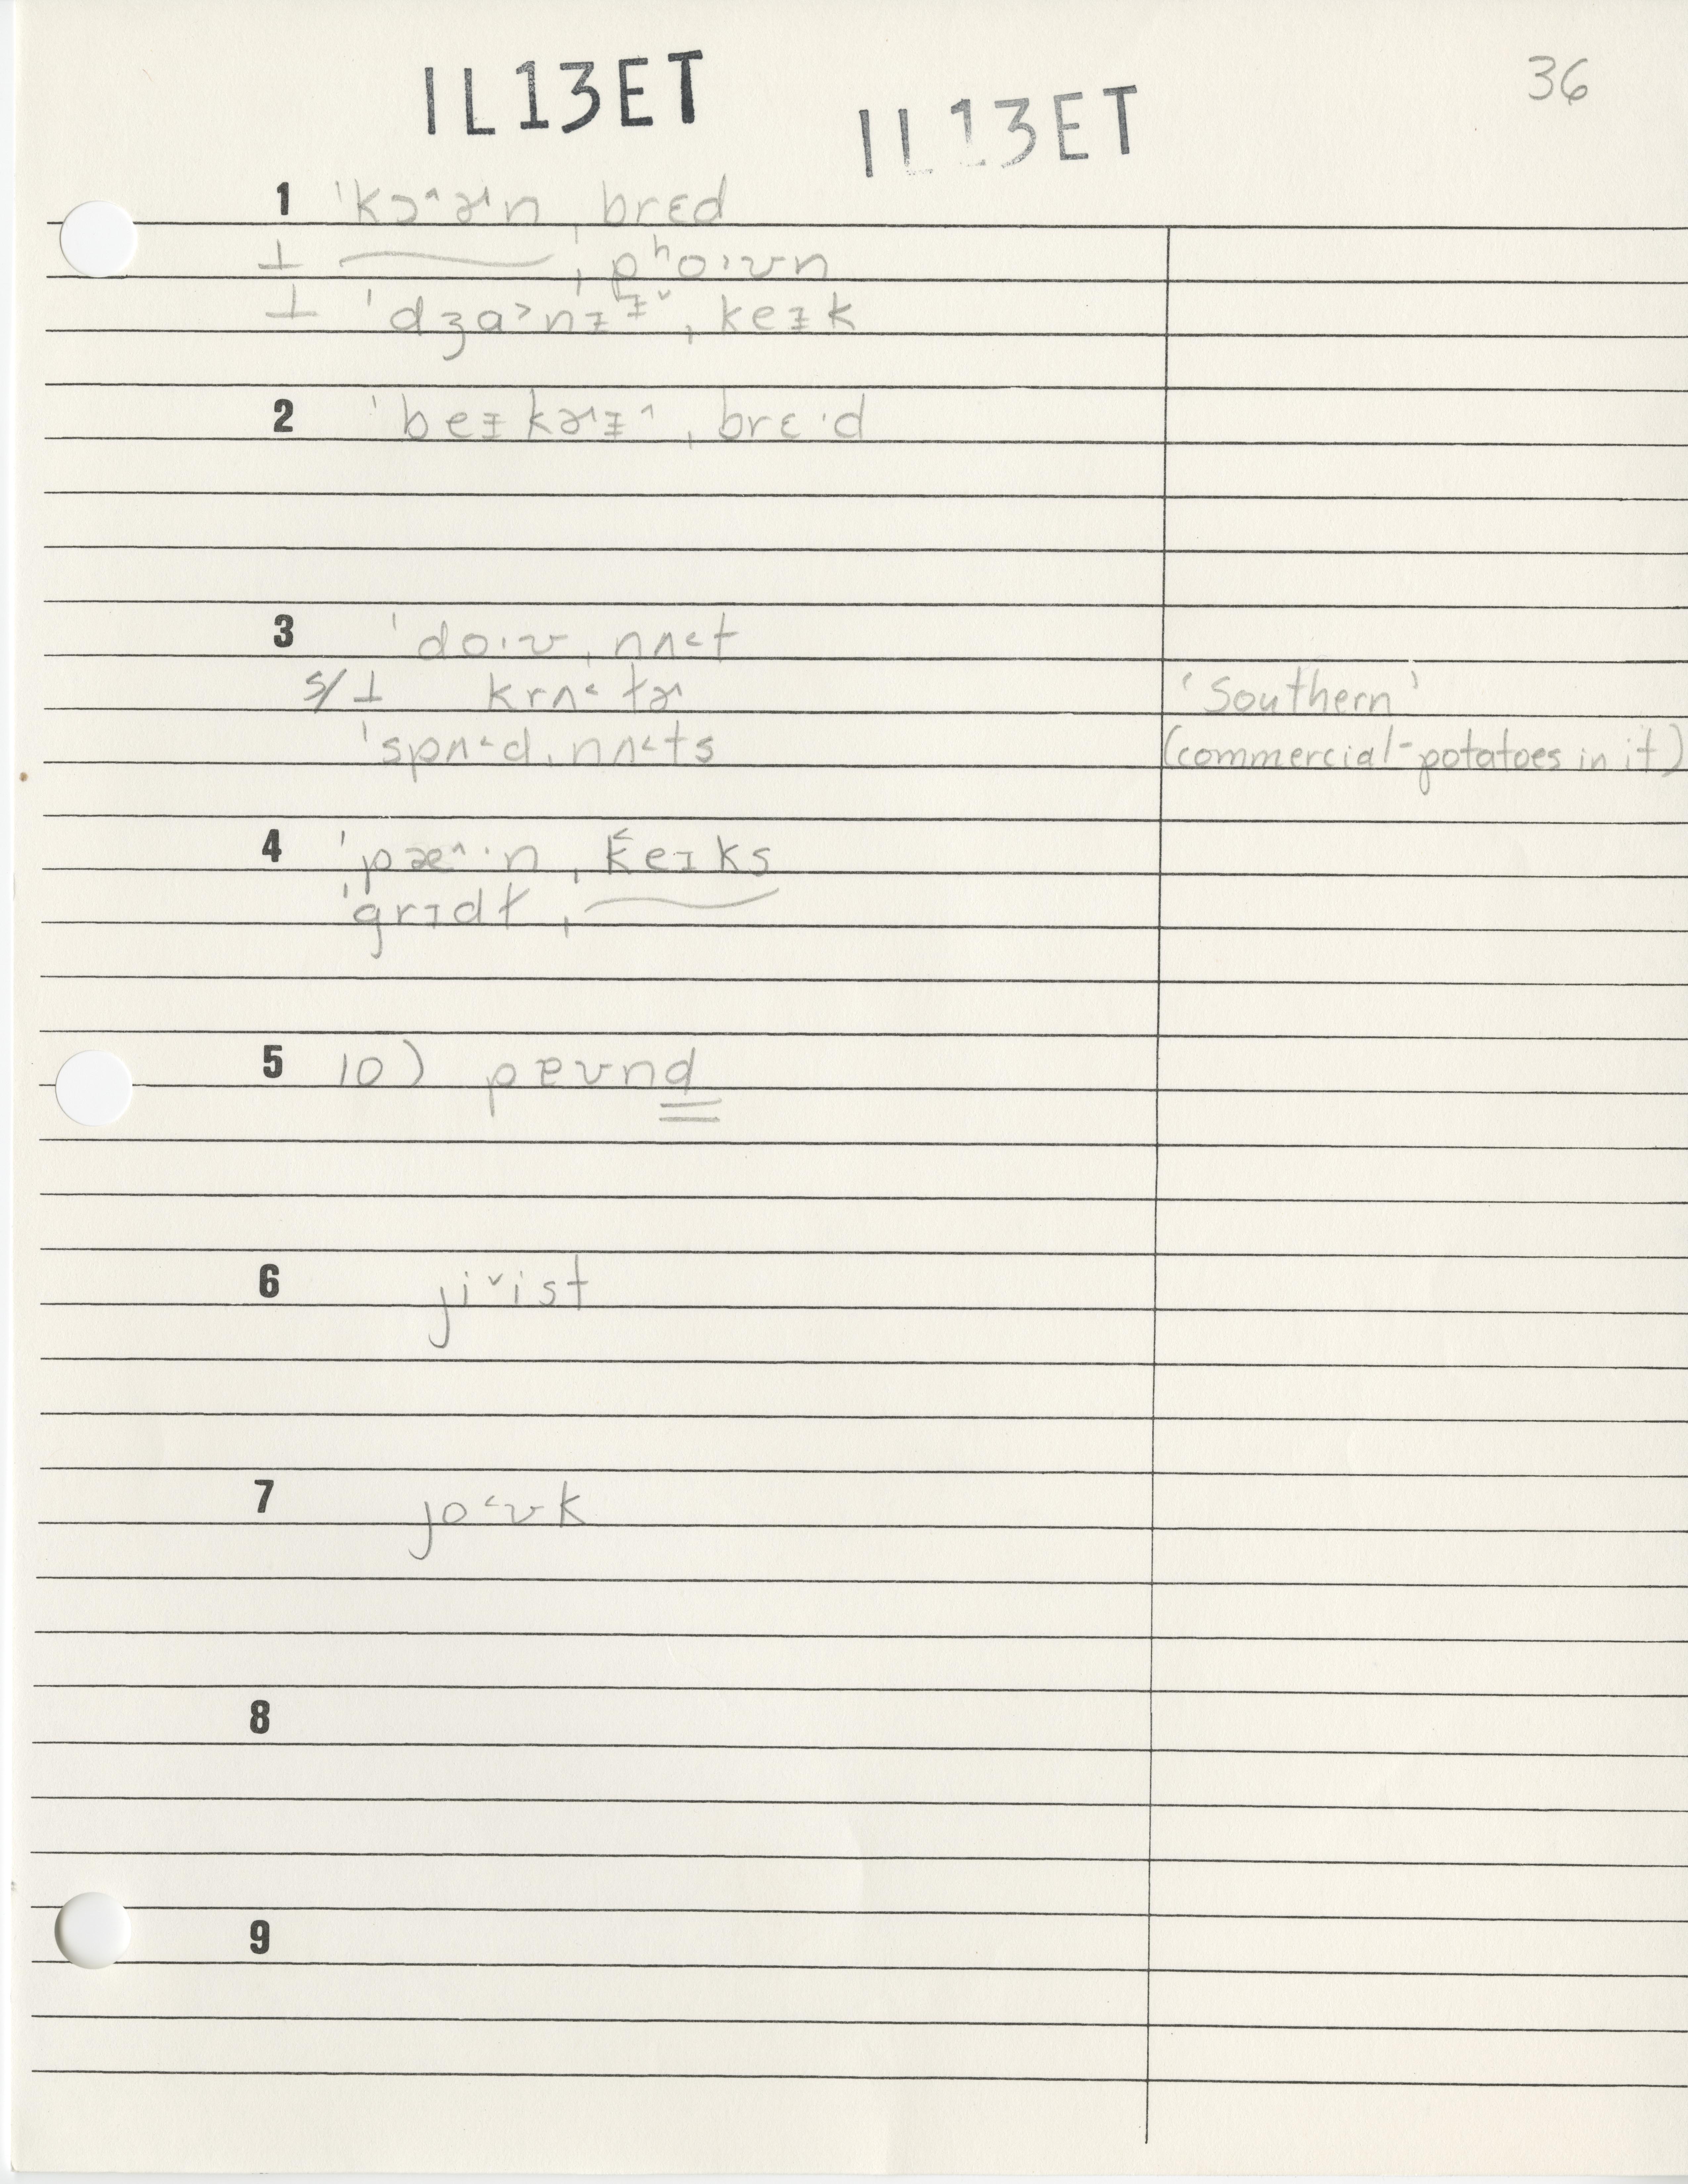 IL13ET IL13ET 36
1 ˈkɔ˄ɚn ˌbrɛd
⊥ ⁓ ˌpʰo·ʊn
⊥ ˈdʒɑ˃nɪ̵ɪ̵˅ ˌkeɪ̵k
2 ˈbeɪ̵kɚɪ̵˄ ˌbrɛ·d
3 ˈdo·ʊ ˌnʌ˂t
s/⊥ krʌ˂tɚ 'Southern'
ˈspʌ˂d ˌnʌ˂ts (commercial - potatoes in it)
4 ˈpæ˄·n ˌk̂eɪks
ˈgrɪdɫ ˌ⁓
5 10) pɐʊnd
6 ji˅ist
7 jo˂ʊk
8
9